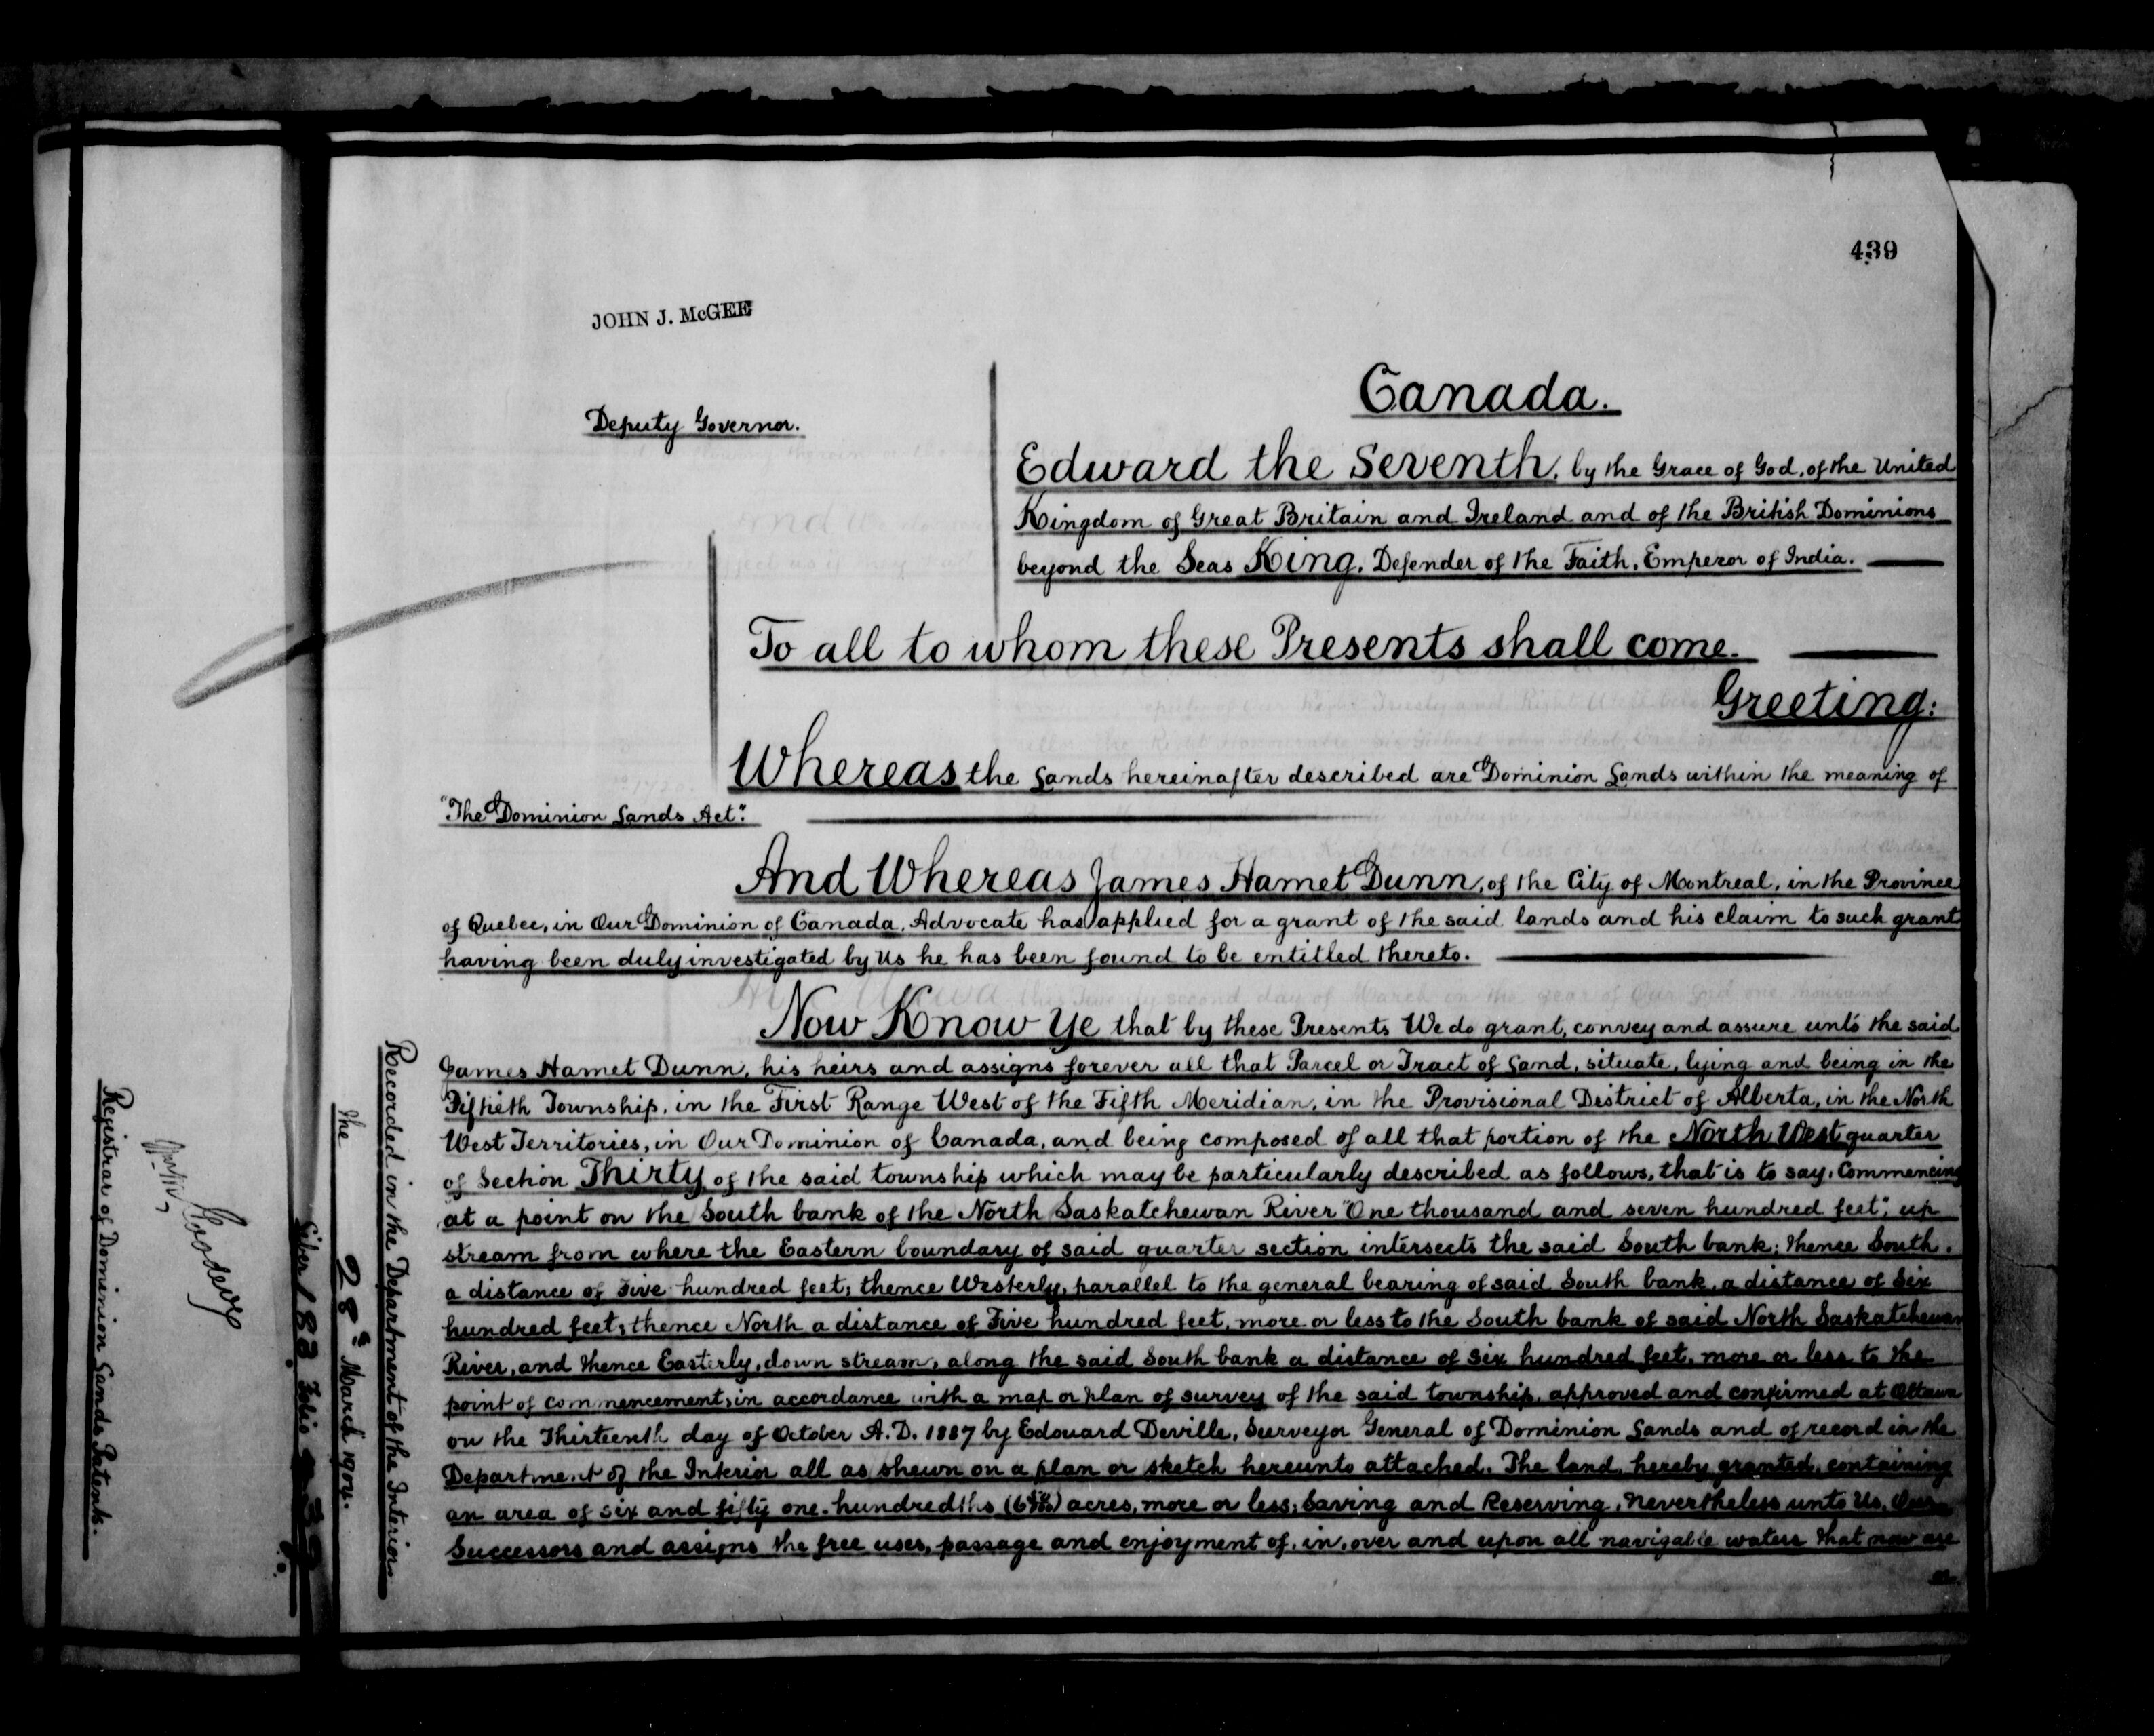 439
JOHN J. McGEE
Deputy Governor.
Canada.
Edward the Seventh, by the Grace of God, of the United
Kingdom of Great Britain and Ireland and of the British Dominions
beyond the Seas King, Defender of the Faith, Emperor of India.
To all to whom these Presents shall come.
Greeting:
Whereas the Lands hereinafter described are Dominion Lands within the meaning of
"The Dominion Lands Act".
And Whereas James Hamet Dunn, of the City of Montreal, in the Province
of Quebec, in Our Dominion of Canada, Advocate has applied for a grant of the said lands and his claim to such grant
having been duly investigated by Us he has been found to be entitled thereto.
Now Know Ye that by these Presents We do grant, convey and assure unto the said
James Hamet Dunn, his heirs and assigns forever all that Parcel or Tract of Land, situate, lying and being in the
Fiftieth Township, in the First Range West of the Fifth Meridian, in the Provisional District of Alberta, in the North
West Territories, in Our Dominion of Canada, and being composed of all that portion of the North West quarter
of Section Thirty of the said township which may be particularly described as follows, that is to say, Commencing
at a point on the South bank of the North Saskatchewan River "One thousand and seven hundred feet", up
stream from where the Eastern boundary of said quarter section intersects the said South bank; thence South,
a distance of Five hundred feet; thence Westerly, parallel to the general bearing of said South bank, a distance of Six
hundred feet; thence North a distance of Five hundred feet, more or less to the South bank of said North Saskatchewan
River, and thence Easterly, down stream, along the said South bank a distance of Six hundred feet, more or less to the
point of commencement, in accordance with a map or plan of survey of the said township, approved and confirmed at Ottawa
on the Thirteenth day of October A.D. 1887 by Edouard Deville, Surveyor General of Dominion Lands and of record in the
Department of the Interior all as shewn on a plan or sketch hereunto attached. The land, hereby granted, containing
an area of six and fifty one-hundredths (6 50/100) acres, more or less; Saving and Reserving, nevertheless unto Us, Our
Successors and assigns the free uses, passage and enjoyment of, in, over and upon all navigable waters that now are
Recorded in the Department of the Interior
the 28 March 1904.
Liber 188 Folio 439
Registrar of Dominion Lands Patents.